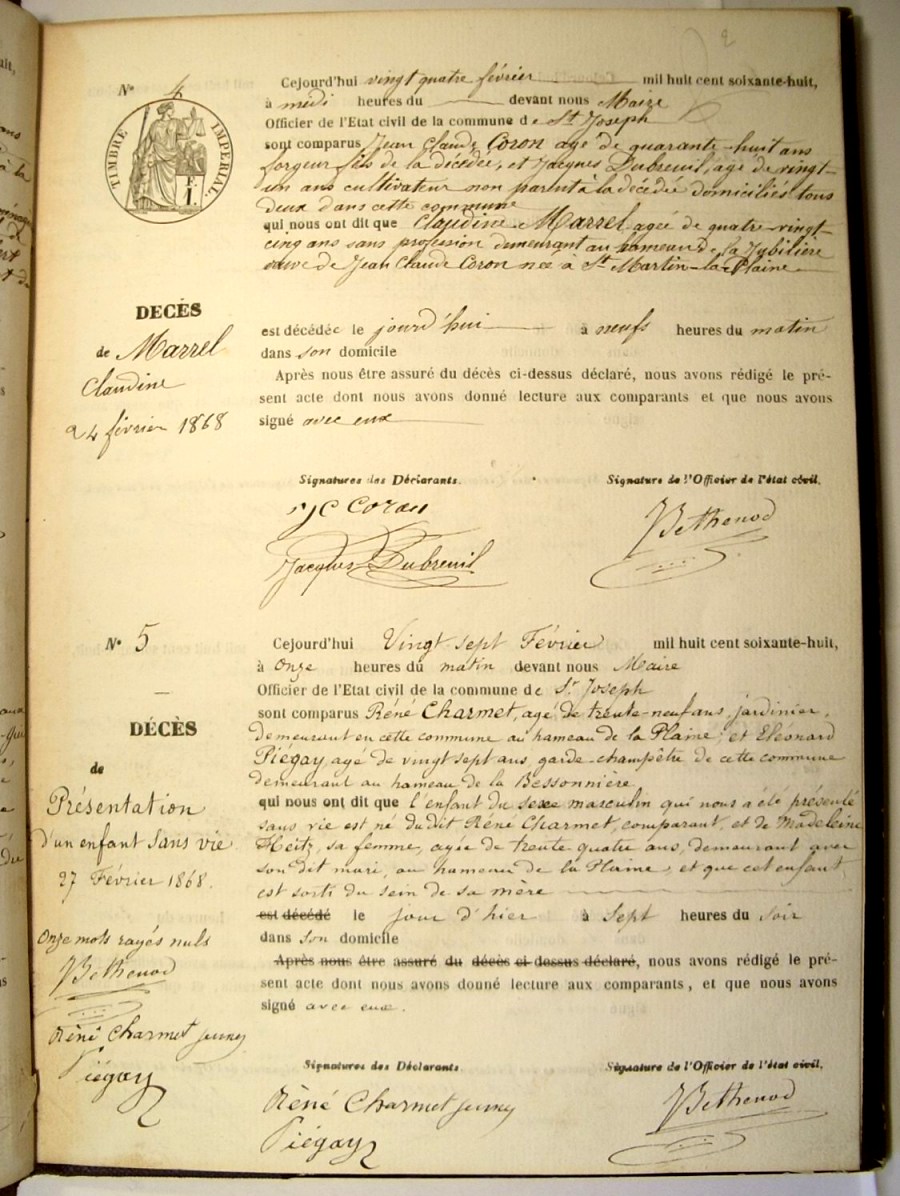 2
N° 4
TIMBRE IMPERIAL.
F.
1.
Cejourd'hui vingt quatre février mil huit cent soixante-huit,
à midi heures du devant nous Maire
Officier de l'Etat civil de la commune de St Joseph
sont comparus Jean Claude Coron agé de quarante-huit ans
forgeur fils de la décédée, et Jacques Dubreuil, agé de vingt-
un ans cultivateur non parent à la décédée domiciliés tous
deux dans cette commune
qui nous ont dit que Claudine Marrel agée de quatre vingt-
cinq ans sans profession demeurant au hameau de la Jubilière
veuve de Jean Claude Coron née à St Martin-la-Plaine
DECÈS
de Marrel
Claudine
24 février 1868
est décédée le jourd'hui à neufs heures du matin
dans son domicile
Après nous être assuré du décès ci-dessus déclaré, nous avons rédigé le pré-
sent acte dont nous avons donné lecture aux comparants et que nous avons
signé avec eux
Signatures des Déclarants. Signature de l'Officier de l'état civil.
JC Coron
Jacques Dubreuil
JBethenod
N° 5
DÉCÈS
de
Présentation
d'un enfant sans vie
27 Février 1868.
Onze mots rayés nuls
JBethenod
Réné Charmet
Piégay
Cejourd'hui Vingt sept Février mil huit cent soixante-huit,
à onze heures du matin devant nous Maire
Officier de l'Etat civil de la commune de St Joseph
sont comparus Réné Charmet, agé de trente-neuf ans, jardinier,
demeurant en cette commune au hameau de la Plaine, et Eléonard
Piégay agé de vingt sept ans, garde-champêtre de cette commune
demeurant au hameau de la Bessonnière
qui nous ont dit que l'enfant du sexe masculin qui nous a été présenté
sans vie est né dudit Réné Charmet, comparant, et de Madeleine
Heitz, sa femme, agée de trente quatre ans, demeurant avec
son dit mari, au hameau de la Plaine, et que cet enfant
est sorti du sein de sa mère
est décédé le jour d'hier à sept heures du soir
dans son domicile
Après nous être assuré du décès ci-dessus déclaré, nous avons rédigé le pré-
sent acte dont nous avons donné lecture aux comparants, et que nous avons
signé avec eux.
Signatures des Déclarants. Signature de l'Officier de l'état civil.
Réné Charmet
Piégay
JBethenod